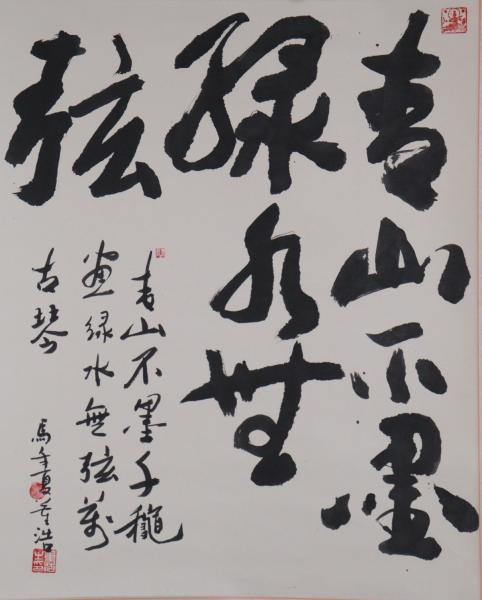 青山不墨
緑水無
弦
青山不墨千穐
畫緑水無弦萬
古琴
馬年夏董浩